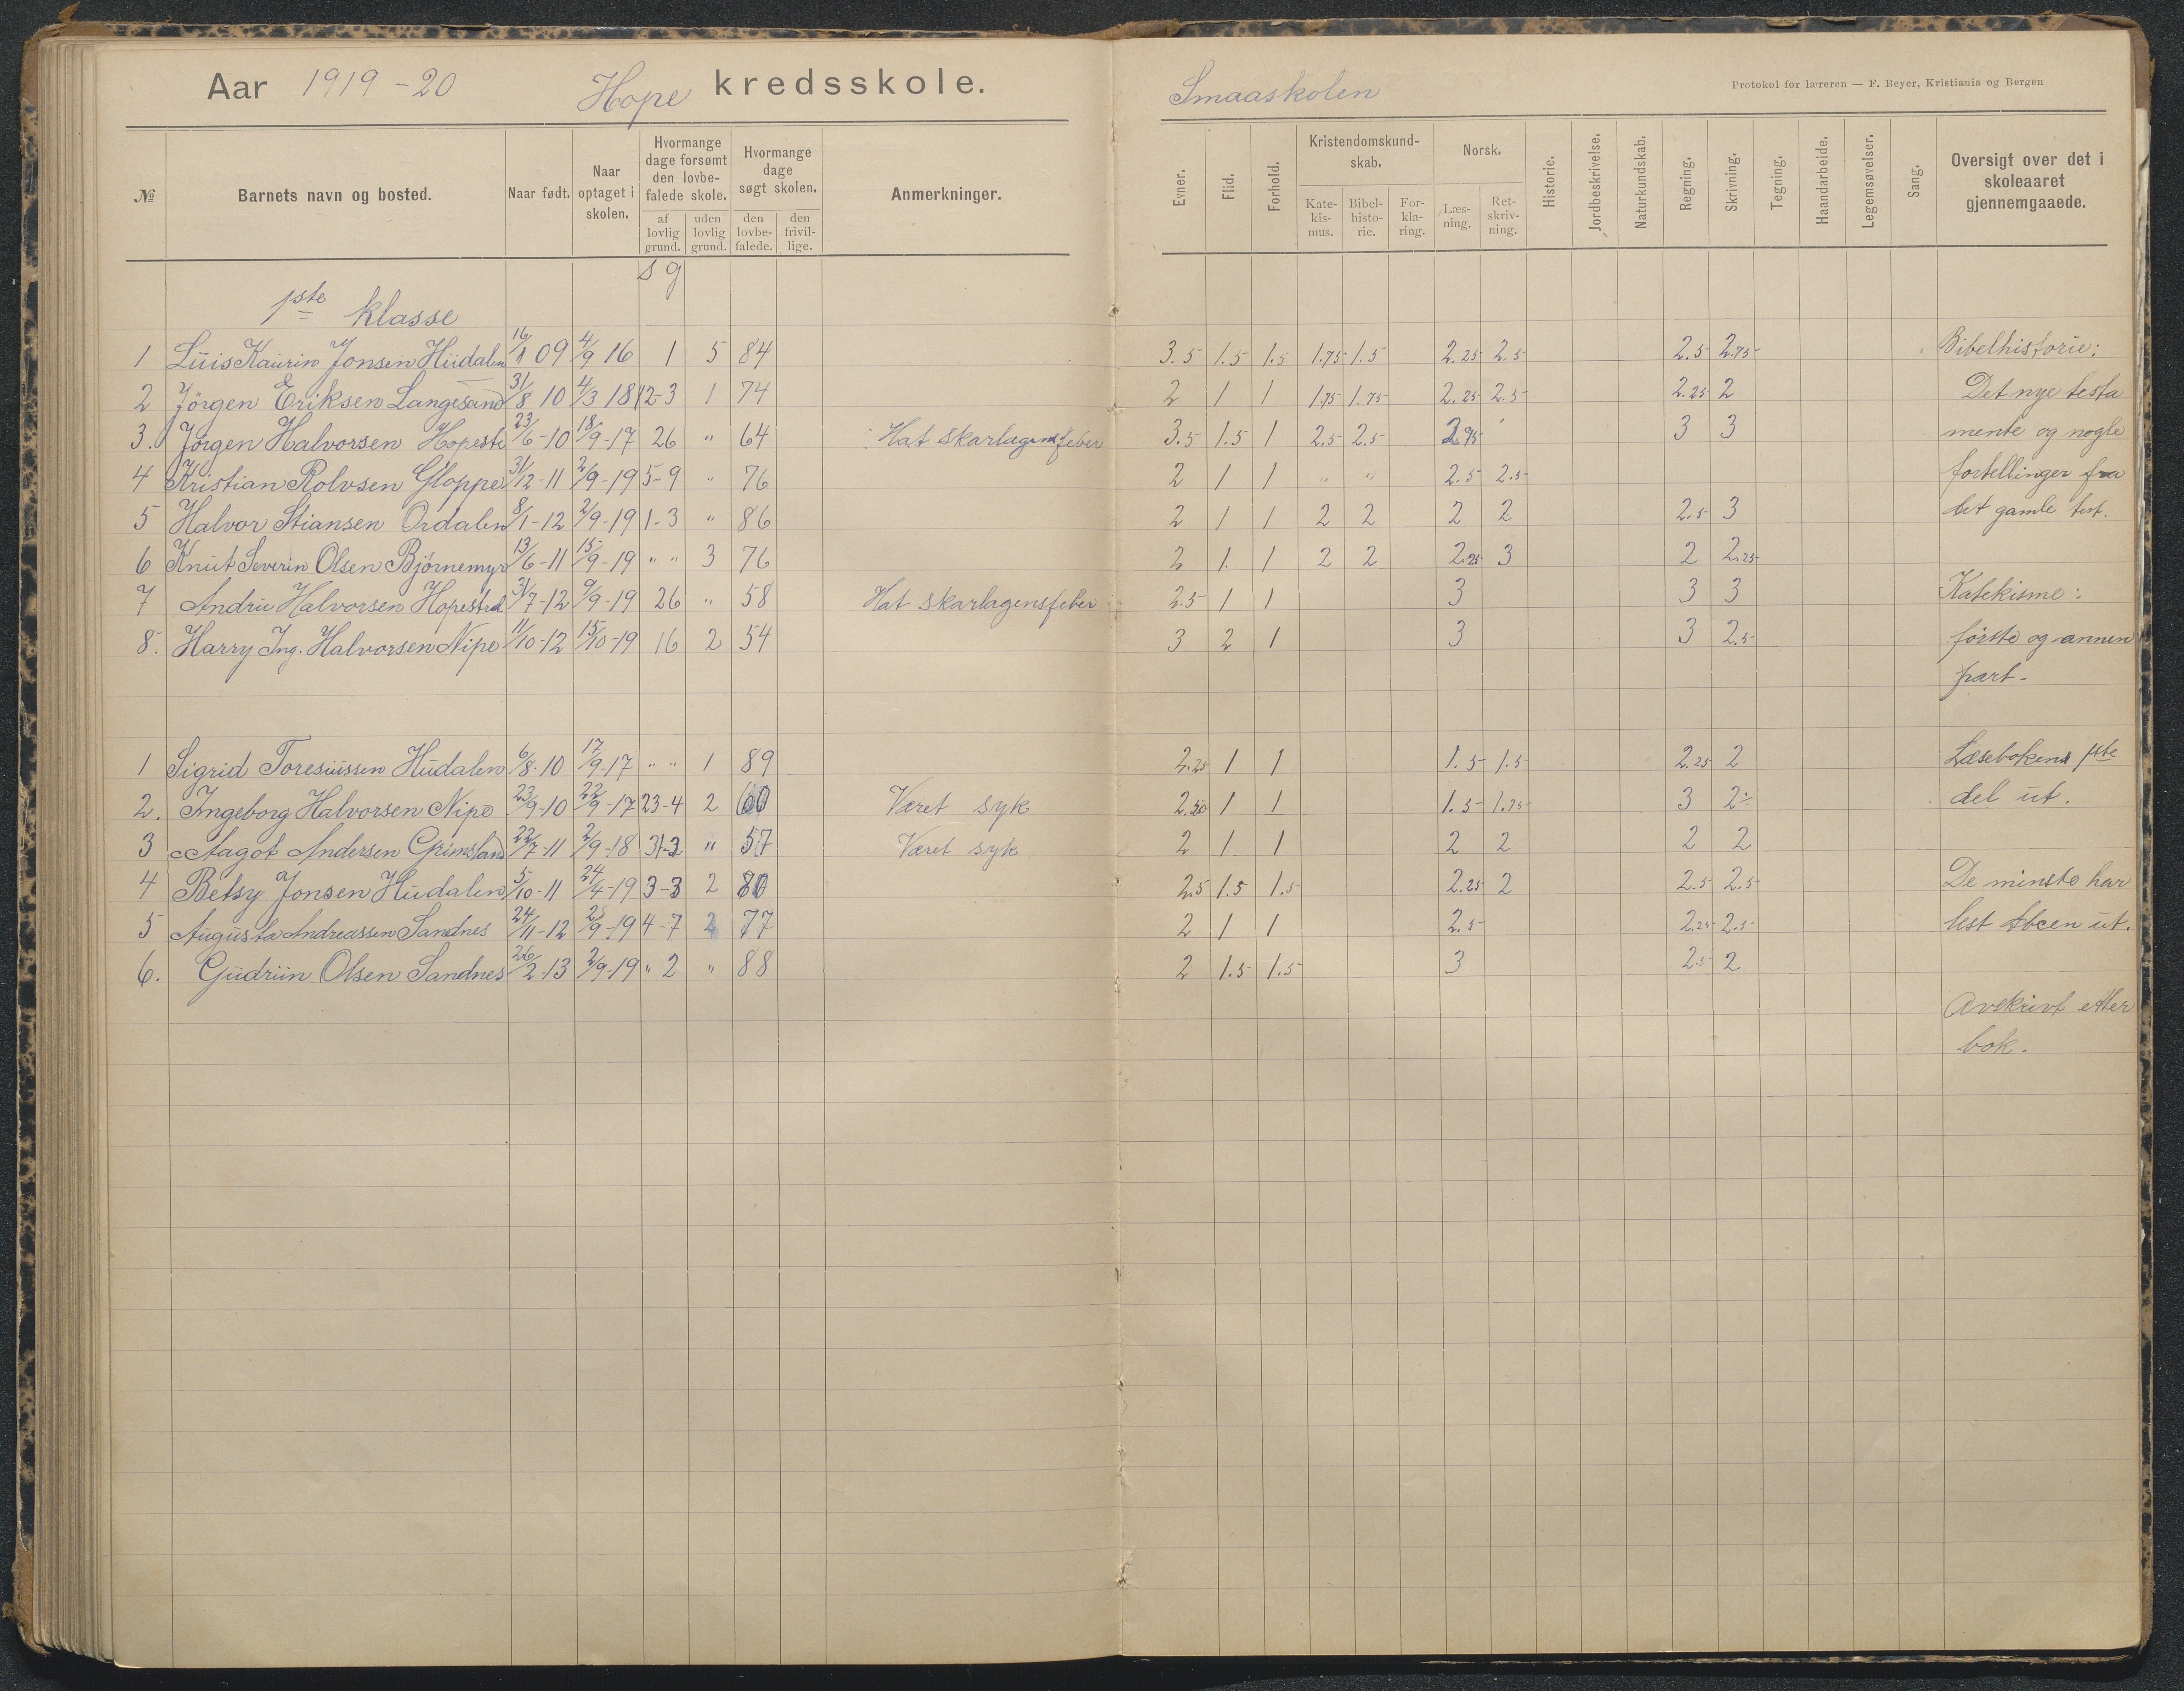 Aar 1919-20 Hope kredsskole. Smaaskolen Protokol for læreren — F. Beyer, Kristiania og Bergen
№ Barnets navn og bosted. Naar født. Naar optaget i skolen. Hvormange dage forsømt den lovbefalede skole. af lovlig grund. uden lovlig grund. Hvormange dage søgt skolen. den lovbefalede. den frivillige. Anmerkninger. Evner. Flid. Forhold. Kristendomskundskab. Katekismus. Bibelhistorie. Forklaring. Norsk. Læsning. Retskrivning. Historie. Jordbeskrivelse. Naturkundskab. Regning. Skrivning. Tegning. Haandarbeide. Legemsøvelser. Sang. Oversigt over det i skoleaaret gjennemgaaede.
s g
1ste klasse
1 Luis Kaurin Jonsen Hudalen 16/1 09 4/9 16 1 5 84 3.5 1.5 1.5 1.75 1.5 2.25 2.5 2.5 2.75 Bibelhistorie:
2 Jörgen Eriksen Langesand 31/8 10 4/3 18 12-3 1 74 2 1 1 1.75 1.75 2.25 2.5 2.25 2 Det nye testa
3. Jörgen Halvorsen Hopeste 23/6-10 18/9-17 26 " 64 Hat skarlagensfeber 3.5 1.5 1 2.5 2.5 2.75 3 3 mente og nogle
4 Kristian Rolvsen Gloppe 31/12-11 2/9-19 5-9 " 76 2 1 1 " " 2.5 2.5 fortellinger fra
5 Halvor Stiansen Ordalen 8/1-12 2/9-19 1-3 " 86 2 1 1 2 2 2 2 2.5 3 det gamle test.
6 Knut Severin Olsen Bjørnemyr 13/6-11 15/9-19 " " 3 76 2 1. 1 2 2 2.25 3 2 2.25
7 Andru Halvorsen Hopestrd 31/7-12 9/9-19 26 " 58 Hat skarlagensfeber 2.5 1 1 3 3 3 Katekisme:
8. Harry Ing. Halvorsen Nipe 11/10-12 15/10-19 16 2 54 3 2 1 3 3 2.5 første og annen
part.
1 Sigrid Toresiussen Hudalen 6/8-10 17/9-17 " " 1 89 2.25 1 1 1.5 1.5 2.25 2 Læsebokens 1ste
2. Ingeborg Halvorsen Nipe 23/9-10 22/9-17 23-4 2 60 Været syk 2.50 1 1 1.5 1.25 3 2÷ del ut.
3 Aagot Andersen Grimsland 22/7-11 2/9-18 31-3 " 57 Været syk 2 1 1 2 2 2 2
4 Betsy Jonsen Hudalen 5/10-11 24/4-19 3-3 2 80 2.5 1.5 1.5 2.25 2 2.5 2.5 De minste har
5 Augusta Andreassen Sandnes 24/11-12 2/9-19 4-7 2 77 2 1 1 2.5 2.25 2.5 lest Abcen ut.
6. Gudrun Olsen Sandnes 26/2-13 2/9-19 " 2 " 88 2 1.5 1.5 3 2.5 2
Avskrivt etter
bok.